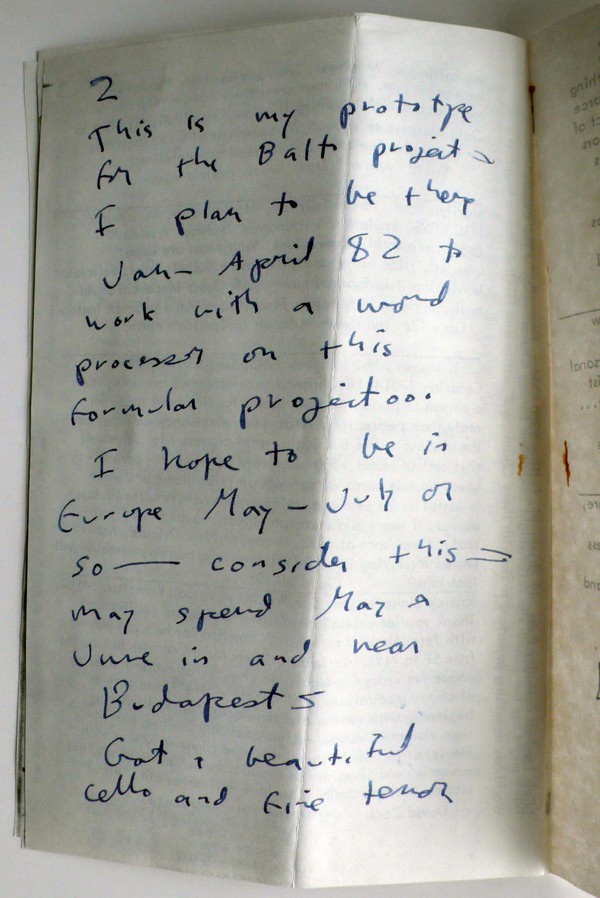 2
This is my prototype
for the Balto project –
I plan to be there
Jan – April 82 to
work with a word
processor on this
formular project...
I hope to be in
Europe May – July or
so — consider this =
may spend May a
June in and near
Budapest
Got a beautiful
cello and fine tenor